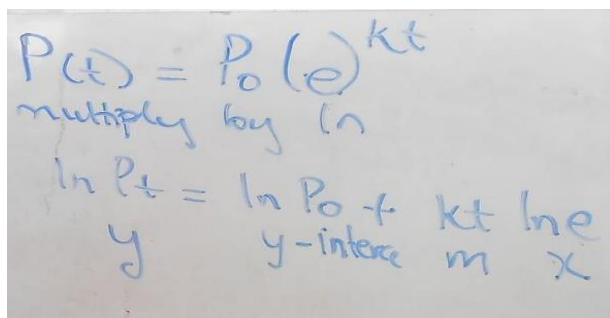 P(t) = P₀ (e)^kt
multiply by ln
ln Pt = ln P₀ + kt ln e
y y-interce m x